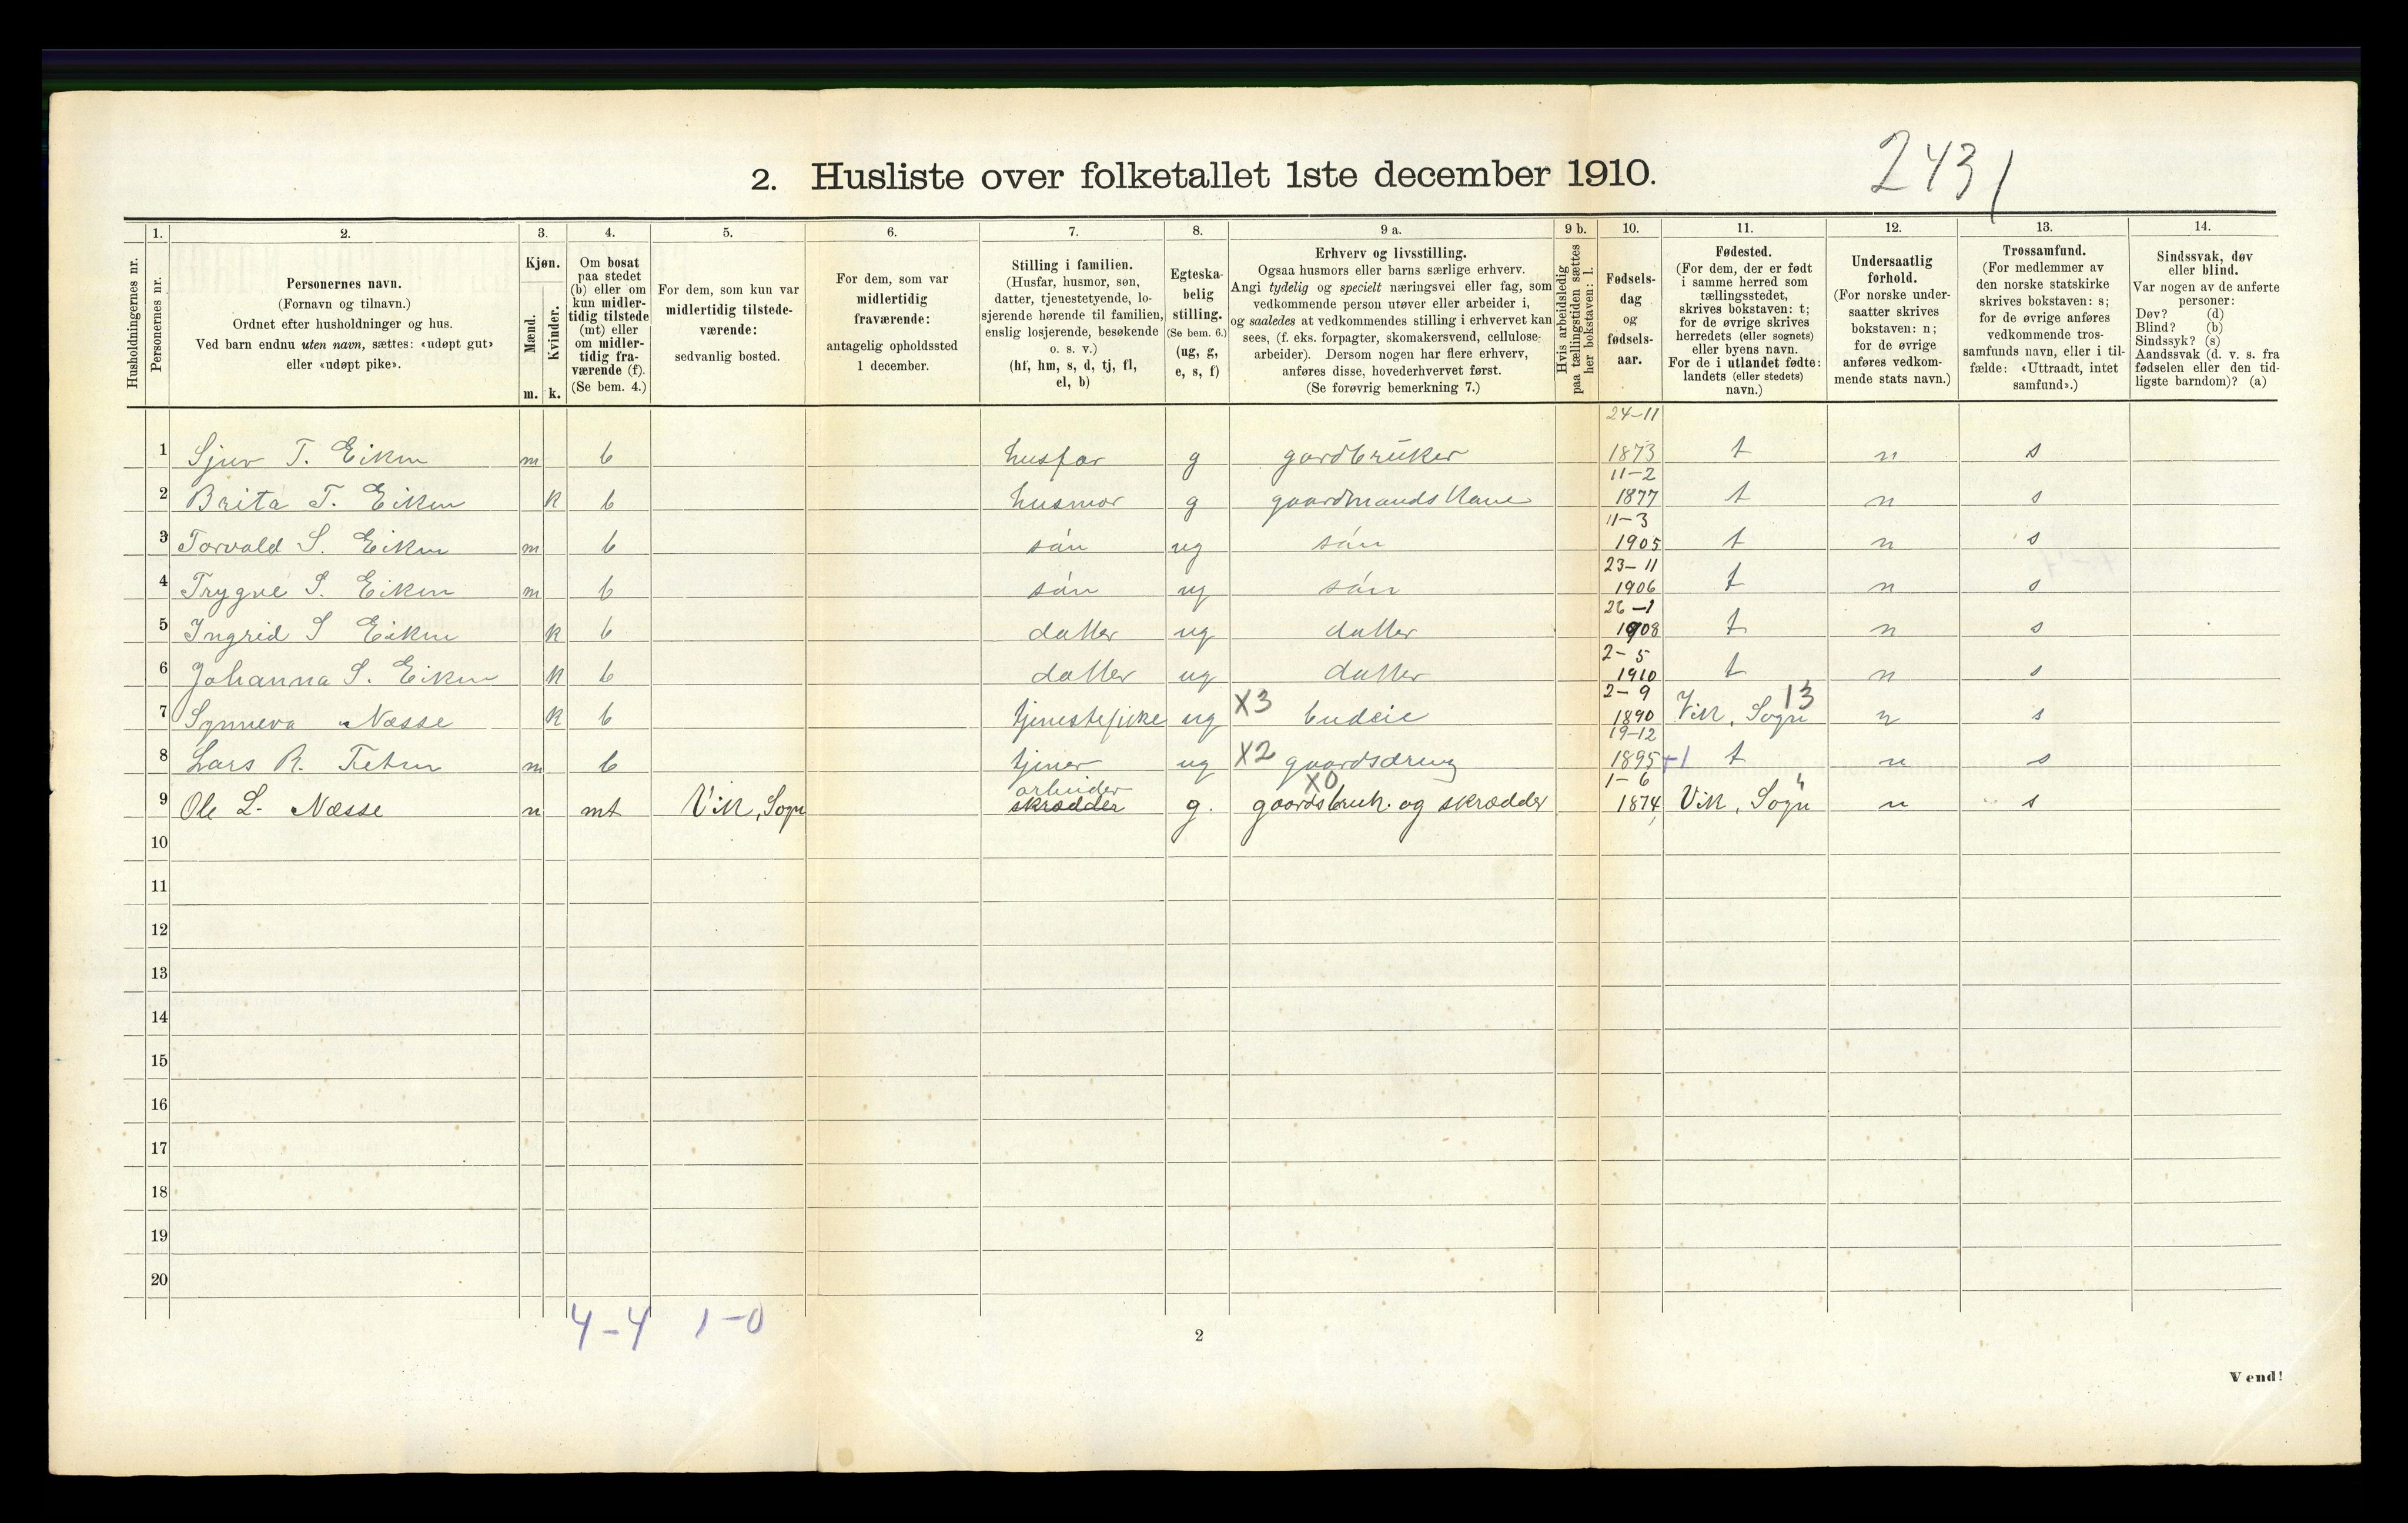 2. Husliste over folketallet 1ste december 1910.
2431
Husholdningernes nr.
1.
Personernes nr.
2.
Personernes navn.
(Fornavn og tilnavn.)
Ordnet efter husholdninger og hus.
Ved barn endnu uten navn, sættes: «udøpt gut»
eller «udøpt pike».
3.
Kjøn.
Mænd.
Kvinder.
m. k.
4.
Om bosat
paa stedet
(b) eller om
kun midler-
tidig tilstede
(mt) eller
om midler-
tidig fra-
værende (f).
(Se bem. 4.)
5.
For dem, som kun var
midlertidig tilstede-
værende:
sedvanlig bosted.
6.
For dem, som var
midlertidig
fraværende:
antagelig opholdssted
1 december.
7.
Stilling i familien.
(Husfar, husmor, søn,
datter, tjenestetyende, lo-
sjerende hørende til familien,
enslig losjerende, besøkende
o. s. v.)
(hf, hm, s, d, tj, fl,
el, b)
8.
Egteska-
belig
stilling.
(Se bem. 6.)
(ug, g,
e, s, f)
9 a.
Erhverv og livsstilling.
Ogsaa husmors eller barns særlige erhverv.
Angi tydelig og specielt næringsvei eller fag, som
vedkommende person utøver eller arbeider i,
og saaledes at vedkommendes stilling i erhvervet kan
sees, (f. eks. forpagter, skomakersvend, cellulose-
arbeider). Dersom nogen har flere erhverv,
anføres disse, hovederhvervet først.
(Se forøvrig bemerkning 7.)
9 b.
Hvis arbeidsledig
paa tællingstiden sættes
her bokstaven: l.
10.
Fødsels-
dag
og
fødsels-
aar.
11.
Fødested.
(For dem, der er født
i samme herred som
tællingsstedet,
skrives bokstaven: t;
for de øvrige skrives
herredets (eller sognets)
eller byens navn.
For de i utlandet fødte:
landets (eller stedets)
navn.)
12.
Undersaatlig
forhold.
(For norske under-
saatter skrives
bokstaven: n;
for de øvrige
anføres vedkom-
mende stats navn.)
13.
Trossamfund.
(For medlemmer av
den norske statskirke
skrives bokstaven: s;
for de øvrige anføres
vedkommende tros-
samfunds navn, eller i til-
fælde: «Uttraadt, intet
samfund».)
14.
Sindssvak, døv
eller blind.
Var nogen av de anførte
personer:
Døv? (d)
Blind? (b)
Sindssyk? (s)
Aandssvak (d. v. s. fra
fødselen eller den tid-
ligste barndom)? (a)
24-11
1 Sjur T. Eiken m b husfar g gardbruker 1873 t n s
11-2
2 Brita T. Eiken k b husmor g gaardmands kane 1877 t n s
11-3
3 Torvald S. Eiken m b sán ug sán 1905 t n s
23-11
4 Trygve S. Eiken m b sán ug sán 1906 t n s
26-1
5 Ingrid S Eiken k b datter ug datter 1908 t n s
2-5
6 Johanna S. Eiken k b datter ug datter 1910 t n s
2-9 13
7 Synneva Næsse k b tjenestepike ug X3 budeie 1890 Vik, Sogn n s
19-12
8 Lars R. m b tjener ug X2 gaardsdreng 1895 +1 t n s
arbeider X0 1-6 4
9 Ole L. Næsse m mt Vik, Sogn skrædder g. gaardsbruk. og skrædder 1874 Vik, Sogn n s
10
11
12
13
14
15
16
17
18
19
20
4-4 1-0
2
Vend!